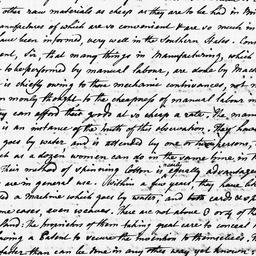 other raw materials as cheap as they are to be had in
manufactures of which are so convenient & are so much in
have been informed, very well in the Southern States. Con
ent, Sir, that many things in Manufacturing, which
to be performed by manual labour, are done by Mach
is chiefly owing to those mechanic contrivances, not
n monly thought to the cheapness of manual labour in
they can afford their goods at so cheap a rate. The man
is an instance of the truth of this observation. They have
goes by water and is attended by one or two persons,
ch as a dozen women can do in the same time, in t
Their method of spinning cotton is equally advantageou
nearly
are in general use. Within a few years, they have like
ed a Machine which goes by water, and both cards & sp
ome cases, even weaves. There are not above 3 or 4 of th
land: the proprietors of them taking great care to conceal
having a Patent to secure the invention to themselves. Th
faster than can be done in any other way yet known &